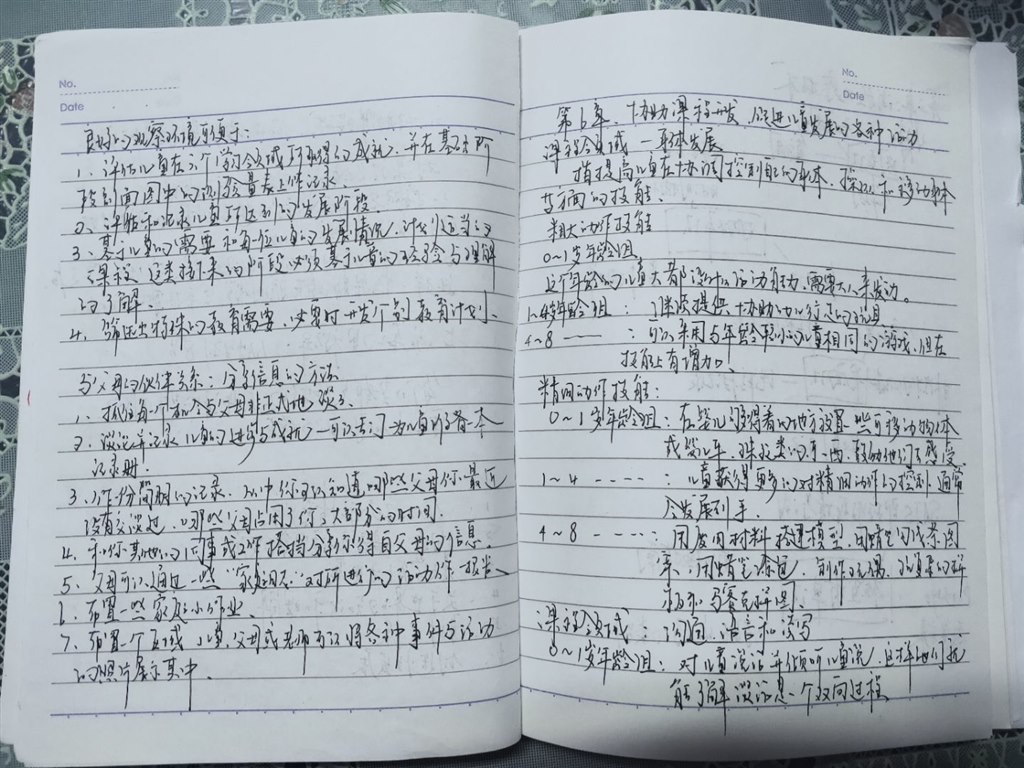 No.
Date
良好的观察环境可领于:
1、评估儿童在六个学习领域所取得的成就,并在基本阶
段剖面图中的测验量表上作记录.
2、评估和记录儿童所达到的发展阶段.
3、基于儿童的需要和每位儿童的发展情况,计划适当的
课程,这类接下来的阶段必须基于儿童的经验与理解
的了解.
4、筛选出特殊的教育需要,必要时开发个别教育计划.
与父母的伙伴关系:分享信息的方法
1、抓住每个机会与父母非正式地谈话
2、谈论并记录儿童的进步与成就—可以专门为儿童准备一本
记录册.
3、作份简明的记录,从中你可以知道哪些父母你最近
没有交谈过,哪些父母占用了你大部分的时间.
4、和你其他的同事或工作搭档分享你得自父母的信息.
5、父母可以通过一些“家庭日志”对所进行的活动作一报告、
6、布置一些家庭小作业
7、布置个区域,儿童、父母或老师可以将各种事件与活动
的照片展示其中.
No.
Date
第6章、协助课程开发,促进儿童发展的各种活动
课程领域—身体发展
指提高儿童在协调控制自己的身体、操纵和移动身体
等方面的技能
粗大动作技能
0~1岁年龄组
这个年龄的儿童大都没什么活动能力,需要大人来发动。
1~4岁年龄组:继续提供协助他们行走的玩具
4~8 ——:可以采用与年龄较小的儿童相同的游戏,但在
技能上有增加。
精细动作技能:
0~1岁年龄组:在婴儿够得着的地方放置一些可移动物体
或婴儿车、珠子类的东西,鼓励他们去感受
1~4 ----:儿童获得更多的对精细动作的控制,通常
会发展利手.
4~8 ----:用废旧材料搭建模型、用蜡笔创作茶图
案、用蜡笔涂色、制作玩偶、复杂的拼
板和马赛克拼图.
课程领域:沟通、语言和读写
0~1岁年龄组:对儿童说话并倾听儿童说,这样他们就
能了解谈话是一个双向过程